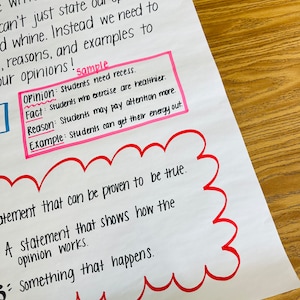 can't just state our
d whine. Instead we need to
, reasons, and examples to
our opinions!
sample
Opinion: Students need recess.
Fact: Students who exercise are healthier.
Reason: Students may pay attention more.
Example: Students can get their energy out
atement that can be proven to be true.
A statement that shows how the
opinion works.
= Something that happens.